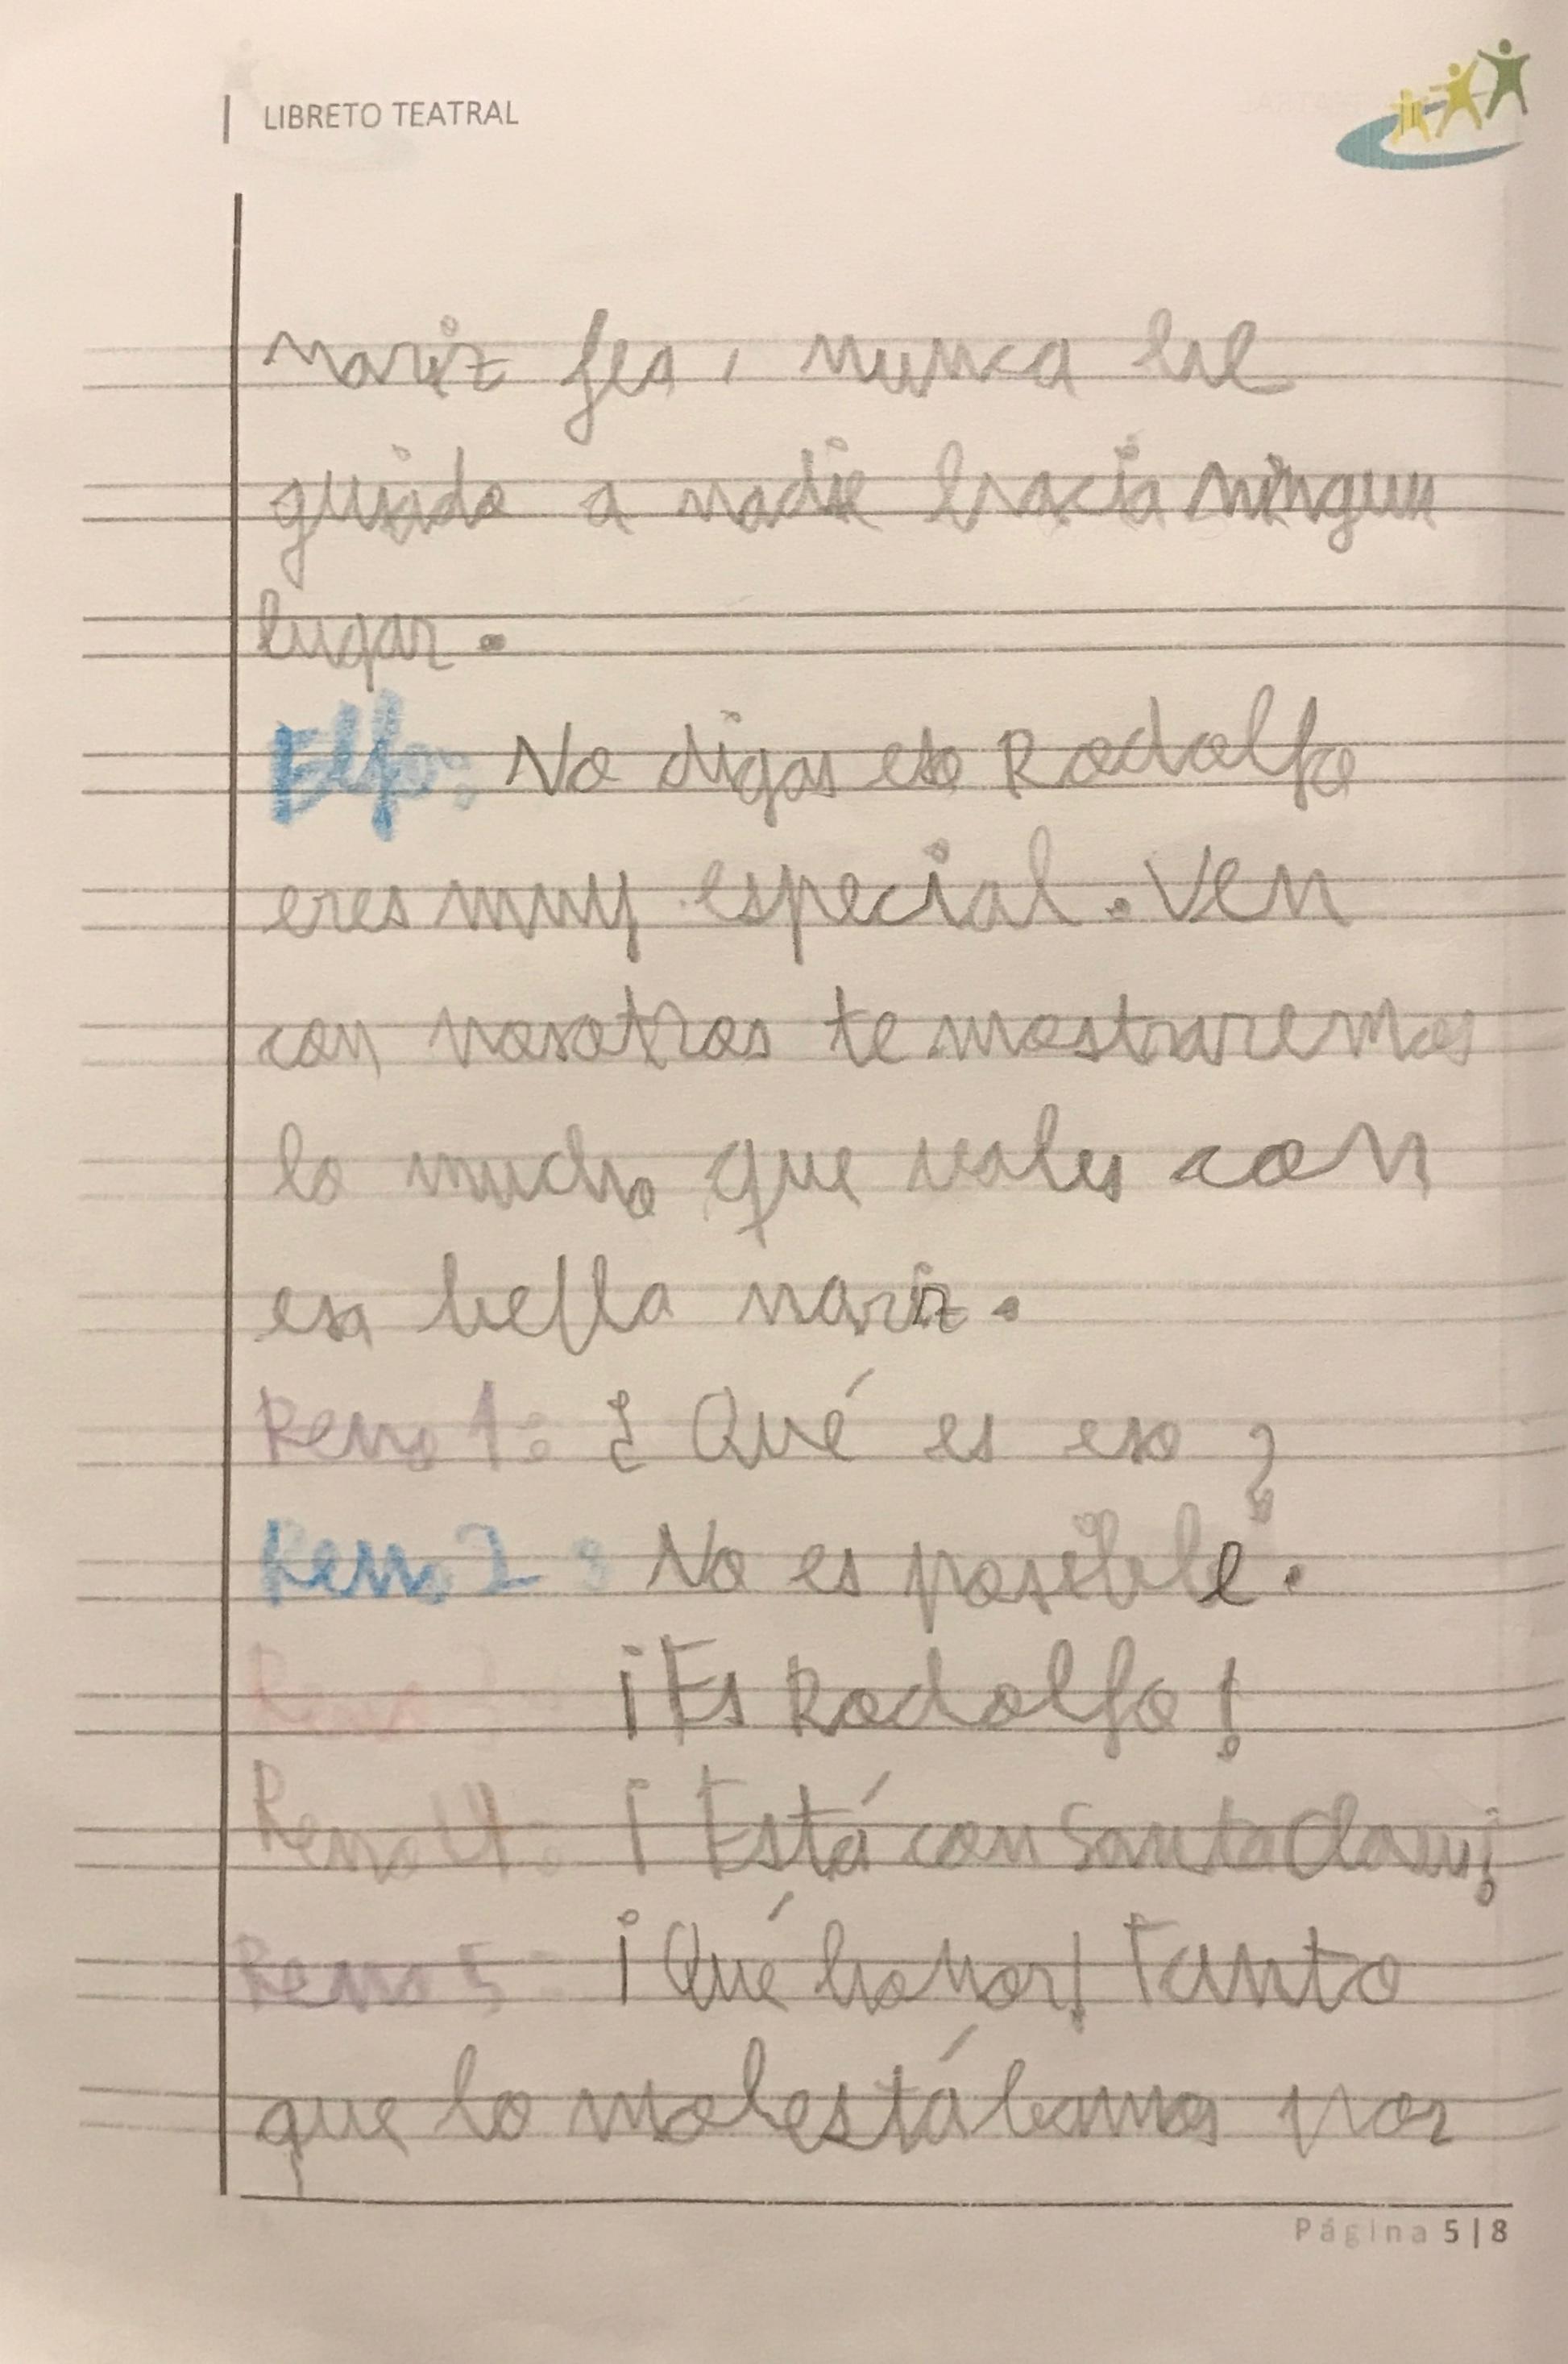 LIBRETO TEATRAL
nariz fea, nunca he
guiado a nadie hacia ningun
lugar.
Elfo: No digas eso Rodolfo
eres muy especial. Ven
con nosotros te mostraremos
lo mucho que vales con
esa bella nariz.
Reno 1: ¿Qué es eso?
Reno 2: No es posible.
Reno 3: ¡Es Rodolfo!
Reno 4: ¡Está con Santa Claus!
Reno 5: ¡Qué honor! Tanto
que lo molestábamos por
Página 5|8